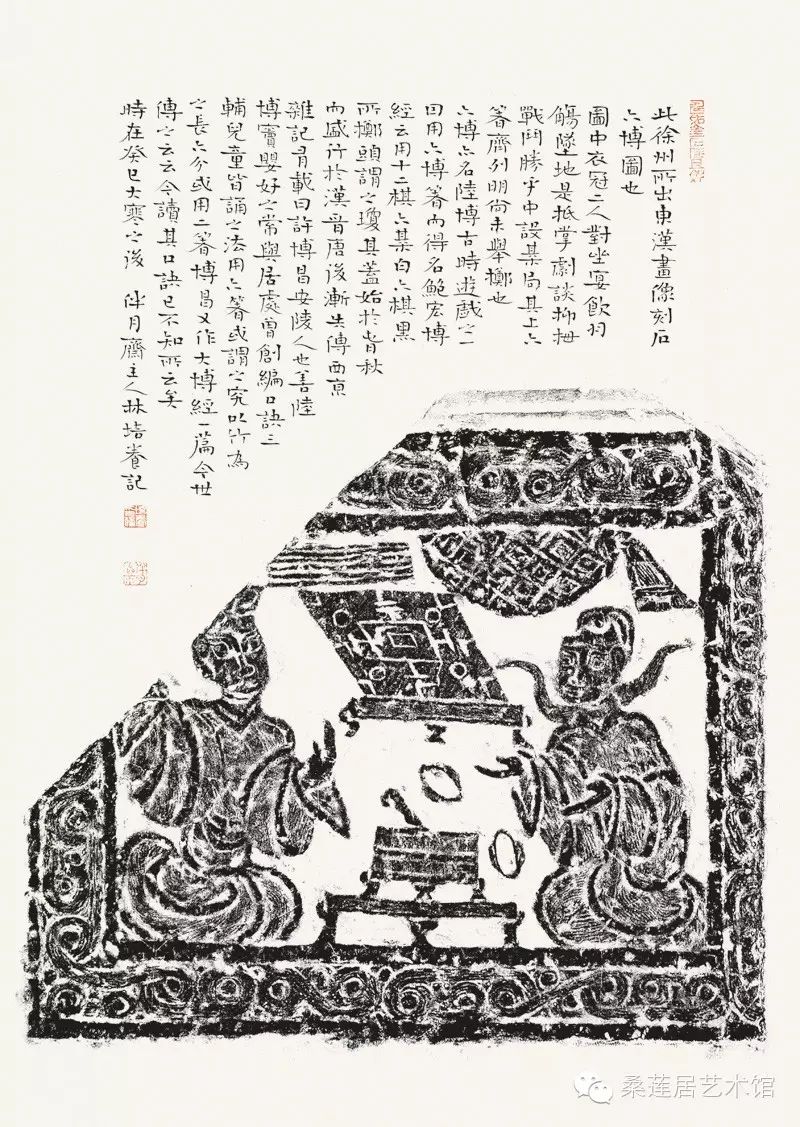 此徐州所出東漢畫像刻石
六博圖也
圖中衣冠二人對坐宴飲羽
觴墜地是抵掌劇談抑拇
戰鬥勝乎中設棊局其上六
箸齊列明尚未舉擲也
六博六名陸博古時遊戲之一
因用六博箸而得名鮑宏博
經云用十二棋六棊白六棋黑
所擲頭謂之瓊其蓋始於春秋
而盛行於漢晉唐後漸失傳西京
雜記有載曰許博昌安陵人也善陸
博竇嬰好之常與居處曾創編口訣三
輔兒童皆誦之法用六箸或謂之究以竹為
之長六分或用二箸博昌又作大博經一篇今世
傳之云云今讀其口訣已不知所云矣
時在癸巳大寒之後 伴月齋主人林培養記
桑莲居艺术馆